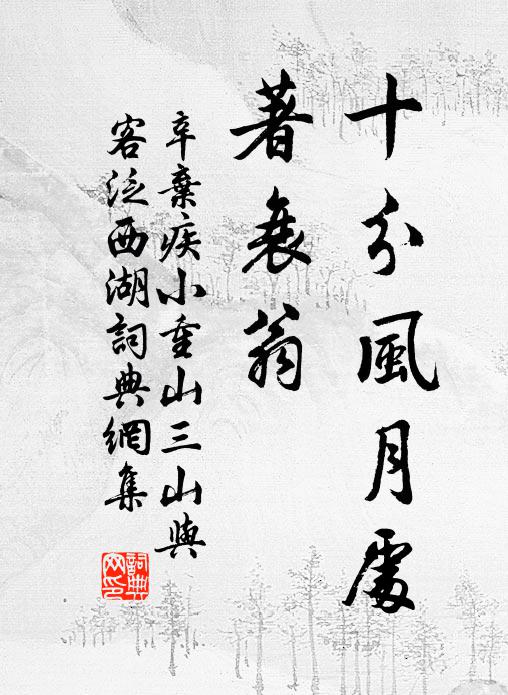 十分風月處
著衰翁
辛棄疾小重山三山與
客泛西湖詞典網集
詞典網印